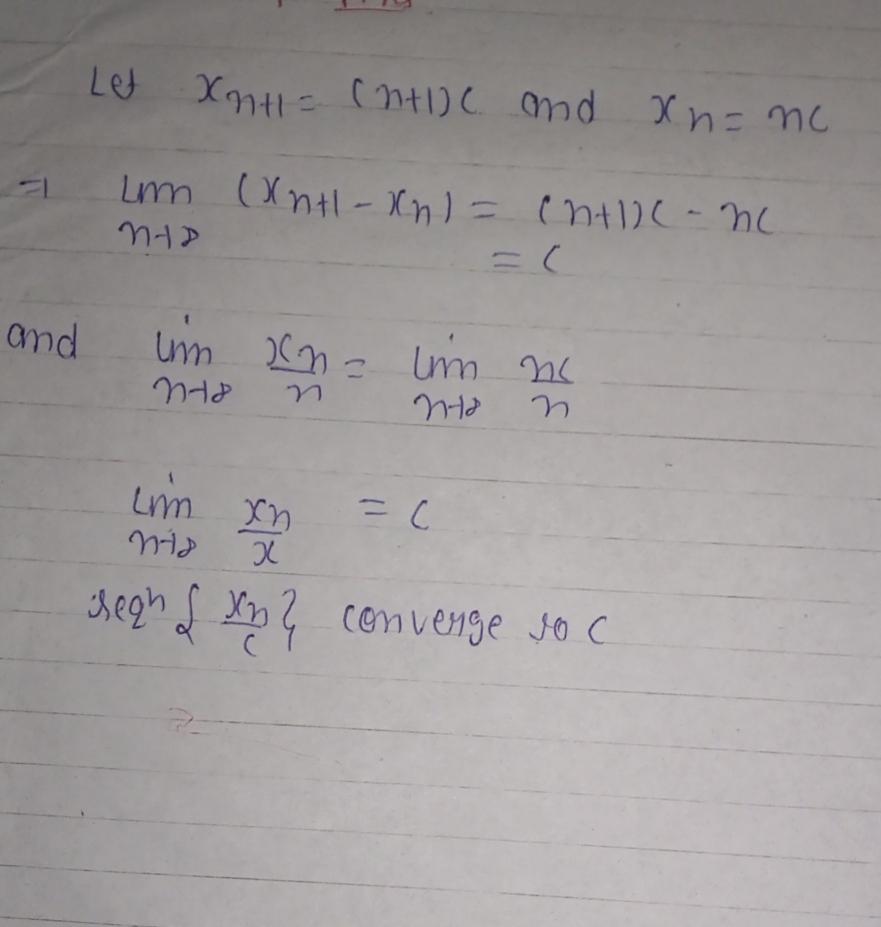 Let x_{n+1} = (n+1)c and x_n = nc
⇒ lim_{n→∞} (x_{n+1} - x_n) = (n+1)c - nc
= c
and lim_{n→∞} x_n/n = lim_{n→∞} nc/n
lim_{n→∞} x_n/x = c
seqn {x_n/c} converge to c